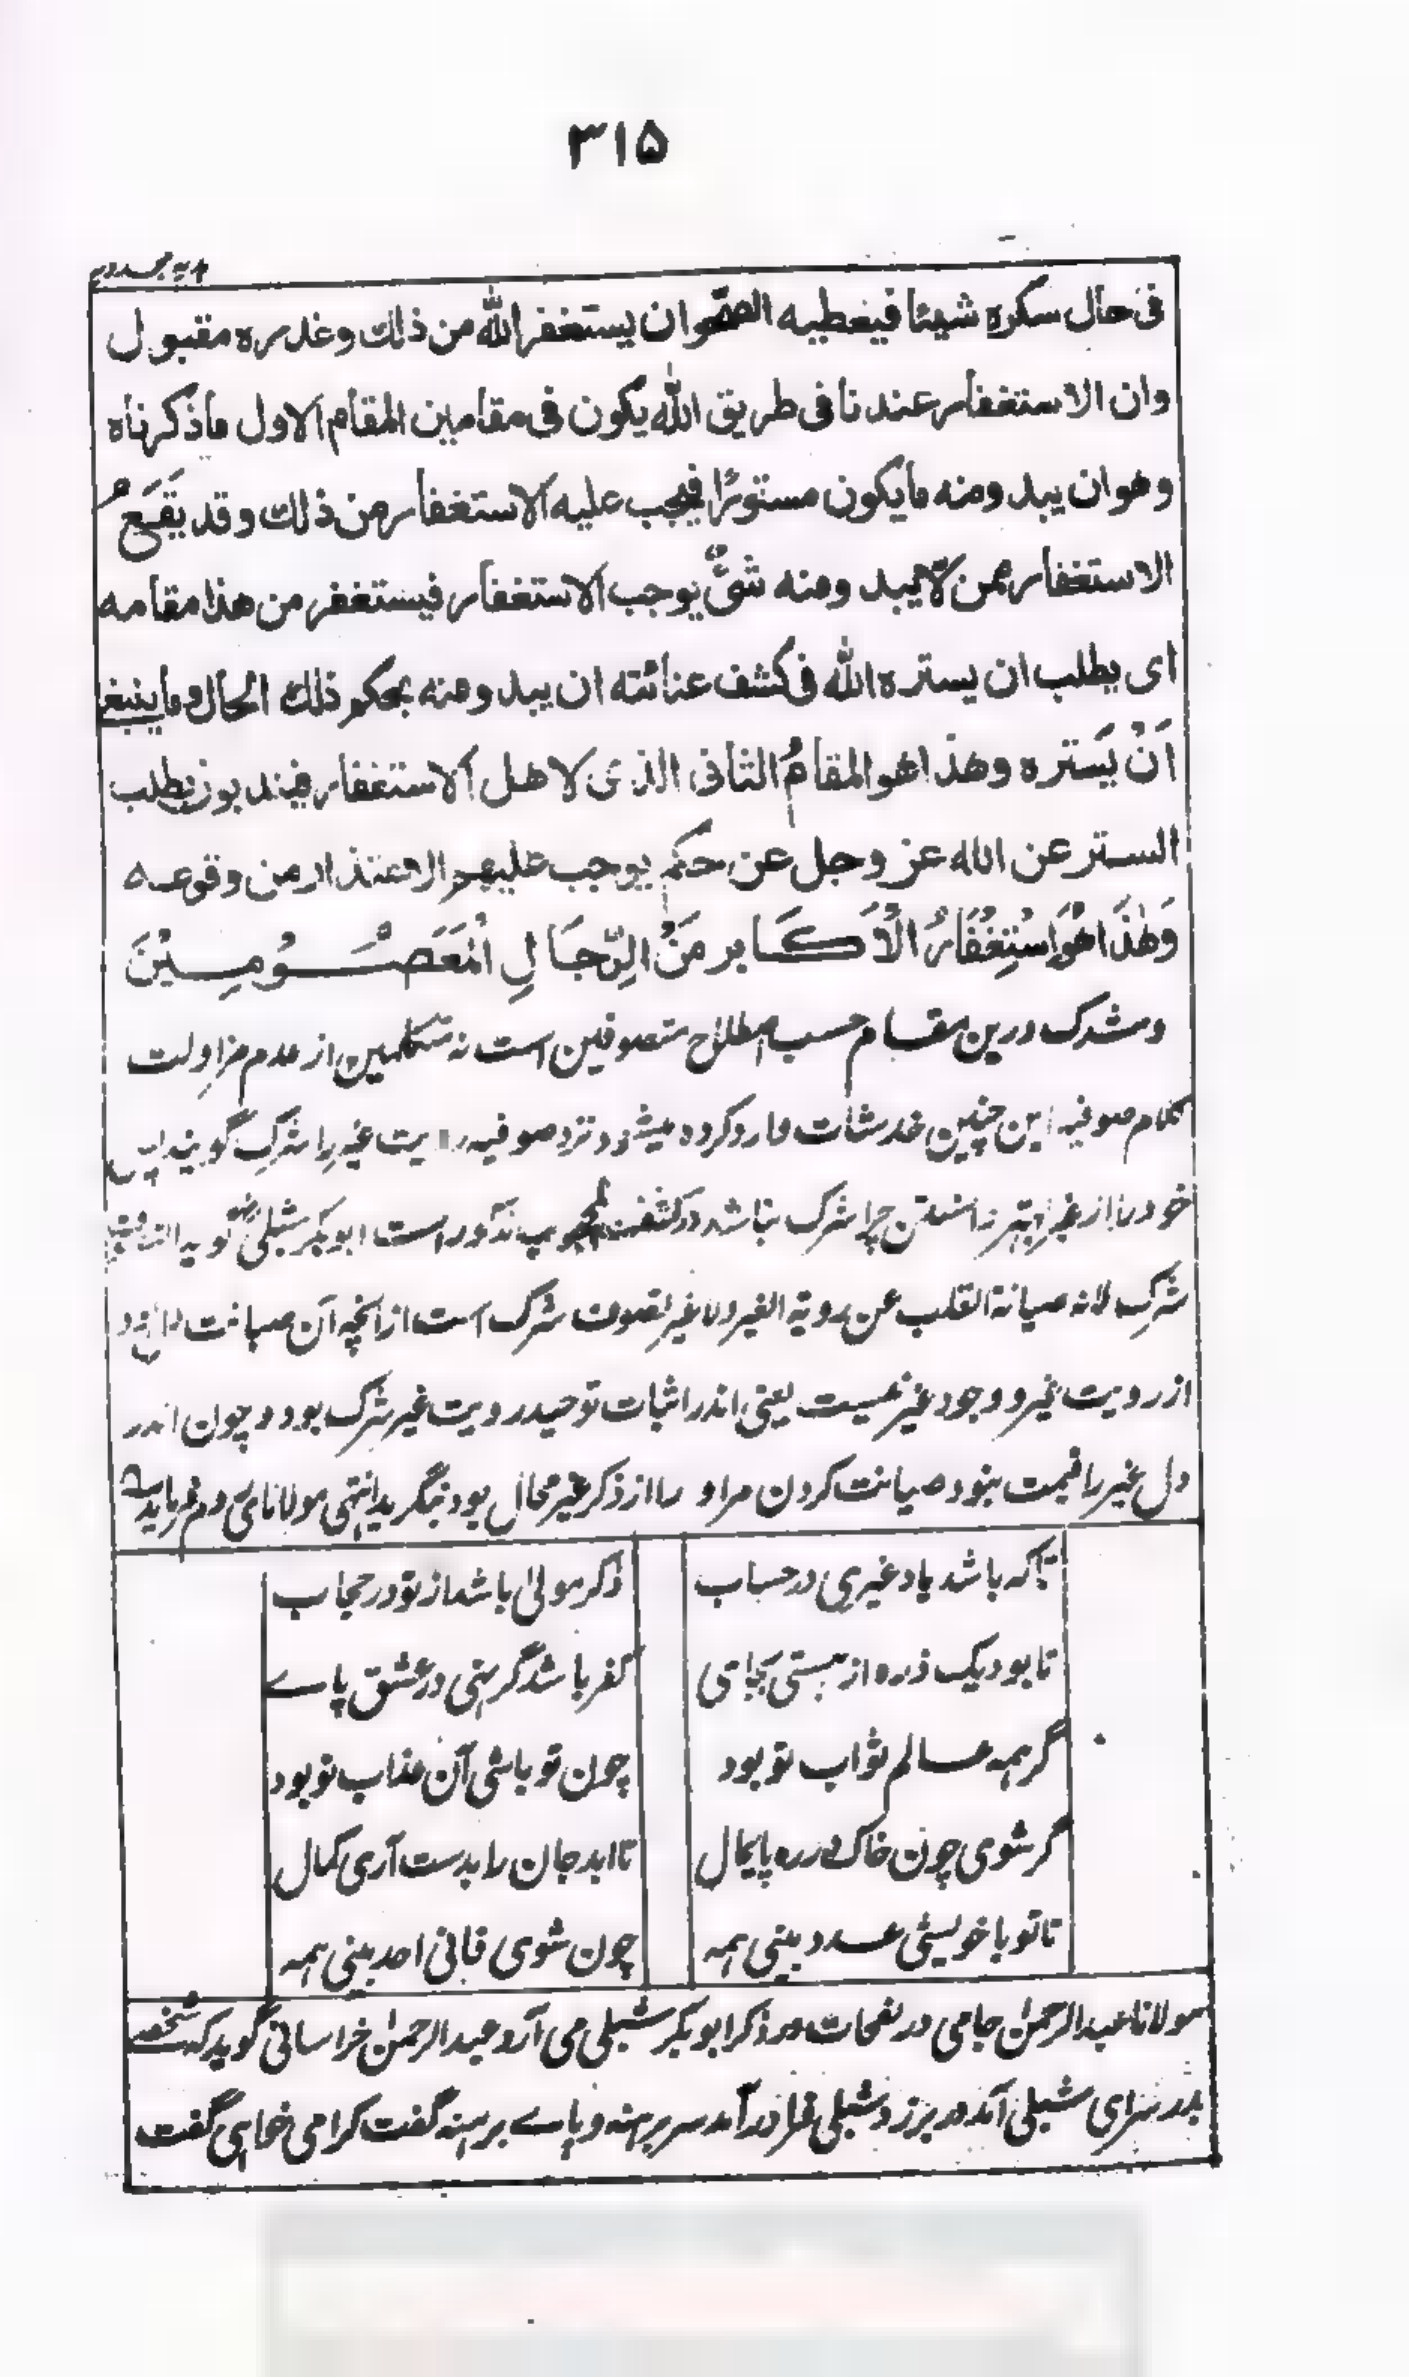 ۳۱۵
فی حال سکره شیئا فیعطیه الصحوان یستغفر الله من ذلك وعذره مقبول
وان الاستغفار عندنا فی طریق الله یکون فی مقامین المقام الاول ماذکرناه
وهوان یبد ومنه مایکون مستورًا فیجب علیه الاستغفار من ذلك وقد یَقَعُ
الاستغفار ممن لا یبد ومنه شیٌٔ یوجب الاستغفار فیستغفر من هذا مقامه
ای یطلب ان یستره الله فی کشف عنائته ان یبد ومنه بحکم ذلك الحال وماینبغ
اَنْ یَستره وهذا هو المقامُ الثانی الذی لاهل الاستغفار یطلب
الستر عن الله عز وجل عن حکم یوجب علیهم الاعتذار من وقوعه
وَهٰذَا هُوَ اسْتِغْفَارُ الْاَکَابر مَنْ الرِّجَالِ الْمَعَصُوْمِیْنَ
ومشرک درین مقام حسب اصطلاح متصوفین است نه متکلمین از عدم مزاولت
کلام صوفیه این چنین خدشات وارد کرده میشود و نزد صوفیه رویت غیر را شرک گویند پس
خود را از غیر بهتر دانستن چرا شرک نباشد در کشف المحجوب مذکور است ابوبکر شبلی گوید التصوف
شرک لانه صیانة القلب عن رویة الغیر ولا غیر تصوف شرک است ازانچه آن صیانت دل بود
از رویت غیر و وجود غیر نیست یعنی اندر اثبات توحید رویت غیر شرک بود و چون اندر
دل غیر را قیمت نبود صیانت کردن مراو را از ذکر غیر محال بود بنگرید انتهی مولانای روم فرماید
تاکه باشد یاد غیری در حساب
ذکر مولیٰ باشد از تو در حجاب
تا بود یک ذره از هستی بجای
کفر باشد گر نهی در عشق پاے
گر همه عالم ثواب تو بود
چون تو باشی آن عذاب تو بود
گر شوی چون خاک در ره پایمال
تا ابد جان را بدست آری کمال
تا تو با خویشی عدد بینی همه
چون شوی فانی احد بینی همه
مولانا عبدالرحمن جامی در نفحات در ذکر ابوبکر شبلی می آرد عبدالرحمن خراسانی گوید که شخصے
بدر سرای شبلی آمد در بزد شبلی فرا در آمد سر برهنه و پاے برهنه گفت کرا می خواهی گفت